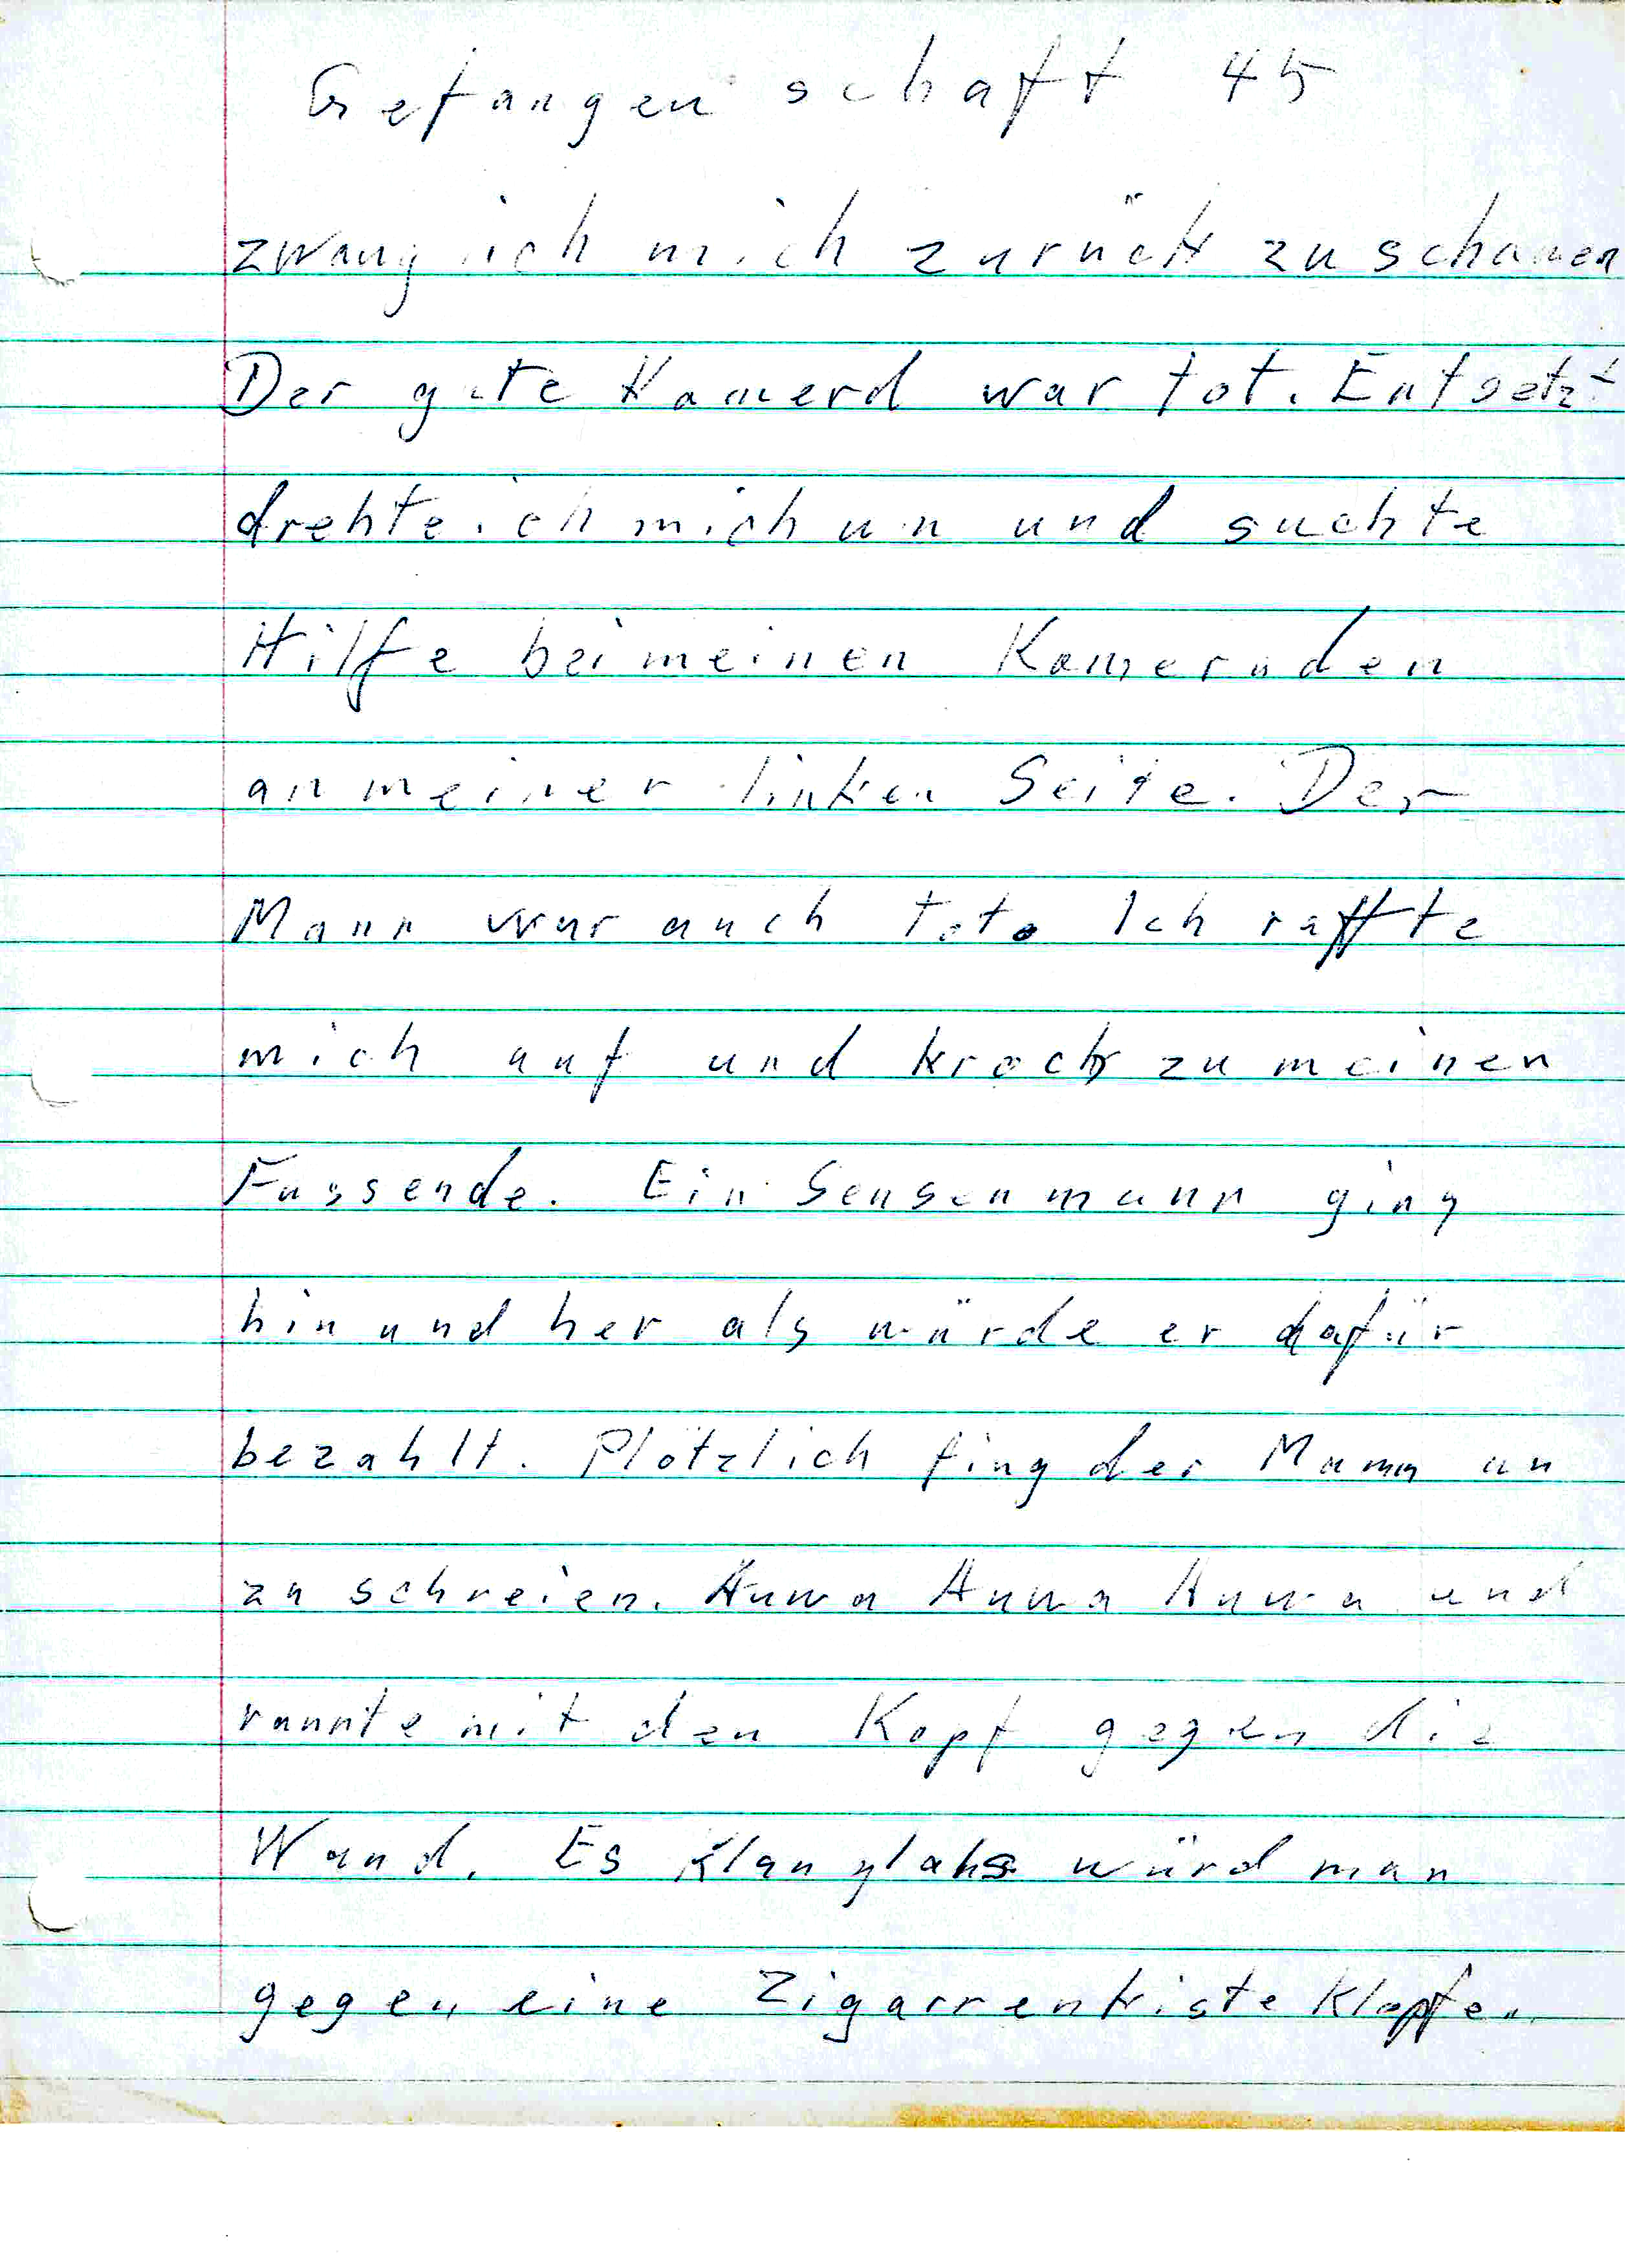 Gefangenschaft 45
zwang ich mich zurück zu schauen
Der gute Kamerd war tot. Entsetzt
drehte ich mich um und suchte
Hilfe bei meinen Kameraden
an meiner linken Seite. Der
Mann war auch tot. Ich raffte
mich auf und kroch zu meinen
Fussende. Ein Sensenmann ging
hin und her als würde er dafür
bezahlt. Plötzlich fing der Mann an
zu schreien. Auwa Auwa Auwa und
rannte mit den Kopf gegen die
Wand. Es klang als würd man
gegen eine Zigarrenkiste klopfen